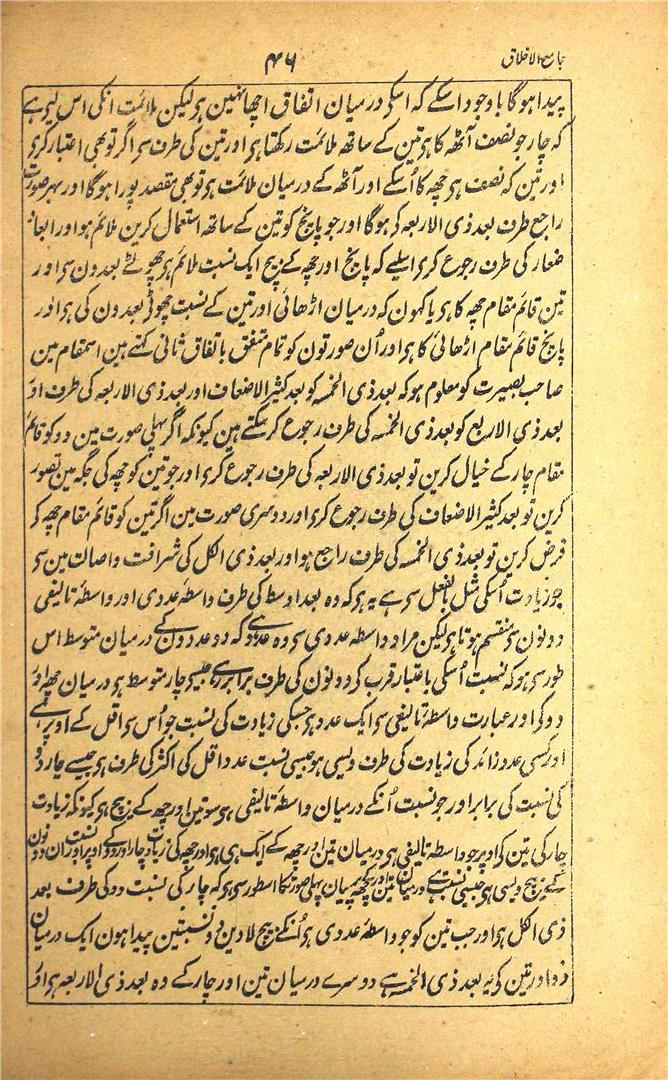 جامع الاخلاق
۴۶
پیدا ہوگا باوجود اسکے کہ اسکی درمیان اتفاق اچھا نہین ہی لیکن ملائمت انکی اس لیے ہے
کہ چار جو نصف آٹھ کا ہی تین کے ساتھ ملائمت رکھتا ہی اور تین کی طرف سی اگر تو بھی اعتبار کری
اور تین کہ نصف ہی چھہ کا اُسکے اور آٹھ کے درمیان ملائمت ہی تو بھی مقصد پورا ہوگا اور بہر صورت
راجع طرف بعد ذی الاربعہ کی ہوگا اور جو پانچ کو تین کے ساتھ استعمال کرین ملائم ہو اور ابعاد
صغار کی طرف رجوع کری اسلیے کہ پانچ اور چھہ کے بیچ ایک نسبت ملائم ہی چھوٹے بعدون سی اور
تین قائم مقام چھہ کا ہی یا کہون کہ درمیان اڑھائی اور تین کے نسبت چھوٹی بعدون کی ہی اور
پانچ قائم مقام اڑھائی کا ہی اور اُن صورتون کو تمام متفق باتفاق ثانی کہتے ہین اسمقام مین
صاحب بصیرت کو معلوم ہو کہ بعد ذی الخمسہ کو بعد کثیر الاضعاف اور بعد ذی الاربعہ کی طرف اور
بعد ذی الاربع کو بعد ذی الخمسہ کی طرف رجوع کر سکتے ہین کیونکہ اگر پہلی صورت مین دو کو قائم
مقام چار کے خیال کرین تو بعد ذی الاربعہ کی طرف رجوع کری اور جو تین کو چھہ کی جگہ مین تصور
کرین تو بعد کثیر الاضعاف کی طرف رجوع کری اور دوسری صورت مین اگر تین کو قائم مقام چھہ کی
فرض کرین تو بعد ذی الخمسہ کی طرف راجع ہو اور بعد ذی الکل کی شرافت و اصالت مین سی
جو زیادت اُسکی مثل بالفعل سی ہے یہ ہی کہ وہ بعد اوسط کی طرف واسطۂ عددی اور واسطۂ تالیفی
دونون سی منقسم ہوتا ہی لیکن مراد واسطۂ عددی سی وہ عدد ہے کہ دو عددون کے درمیان متوسط اس
طور سی ہو کہ نسبت اُسکی باعتبار قرب کی دونون کی طرف برابر رہے جیسی چار متوسط ہی درمیان چھہ اور
دو کی اور عبارت واسطۂ تالیفی سی ایک عدد ہی جسکی زیادت کی نسبت جو اُس سی اقل کے اوپر ہے
اور کسی عدد زائد کی زیادت کی طرف ویسی ہو جیسی نسبت عدد اقل کی اکثر کی طرف ہی جیسے چار دو
کی نسبت کی برابر اور جو نسبت اُنکے درمیان واسطۂ تالیفی ہی سو تین اور چھہ کے بیچ ہی کیونکہ زیادت
چار کی تین کی اوپر جو واسطۂ تالیفی ہی درمیان تین اور چھہ کے ایک ہی ہی اور چھہ کی زیادت چار اوپر دو کے اور نسبت ان دونون
کے بیچ ویسی ہی جیسی نسبت ہے درمیان تین اور چھہ کے بیان پہلی صورتکا اسطور سی ہی کہ چار کی نسبت دو کی طرف بعد
ذی الکل ہی اور جب تین کو جو واسطۂ عددی ہی اُنکے بیچ لا دین دو نسبتین پیدا ہون ایک درمیان
دو اور تین کی یہ بعد ذی الخمسہ ہے دوسرے درمیان تین اور چار کے وہ بعد ذی الاربعہ ہی اور